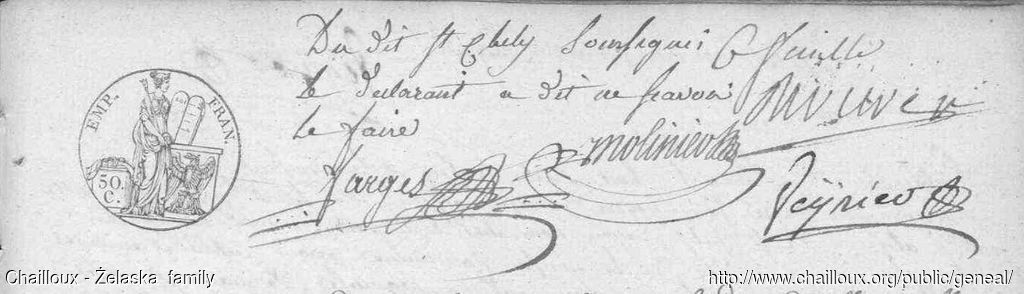 EMP. FRAN.
50.
C.
Du dit St Chely Soussignes
le declarant a dit ne savoir
le faire
farges
molinier
Peÿrieo
Chailloux - Żelaska family
http://www.chailloux.org/public/geneal/